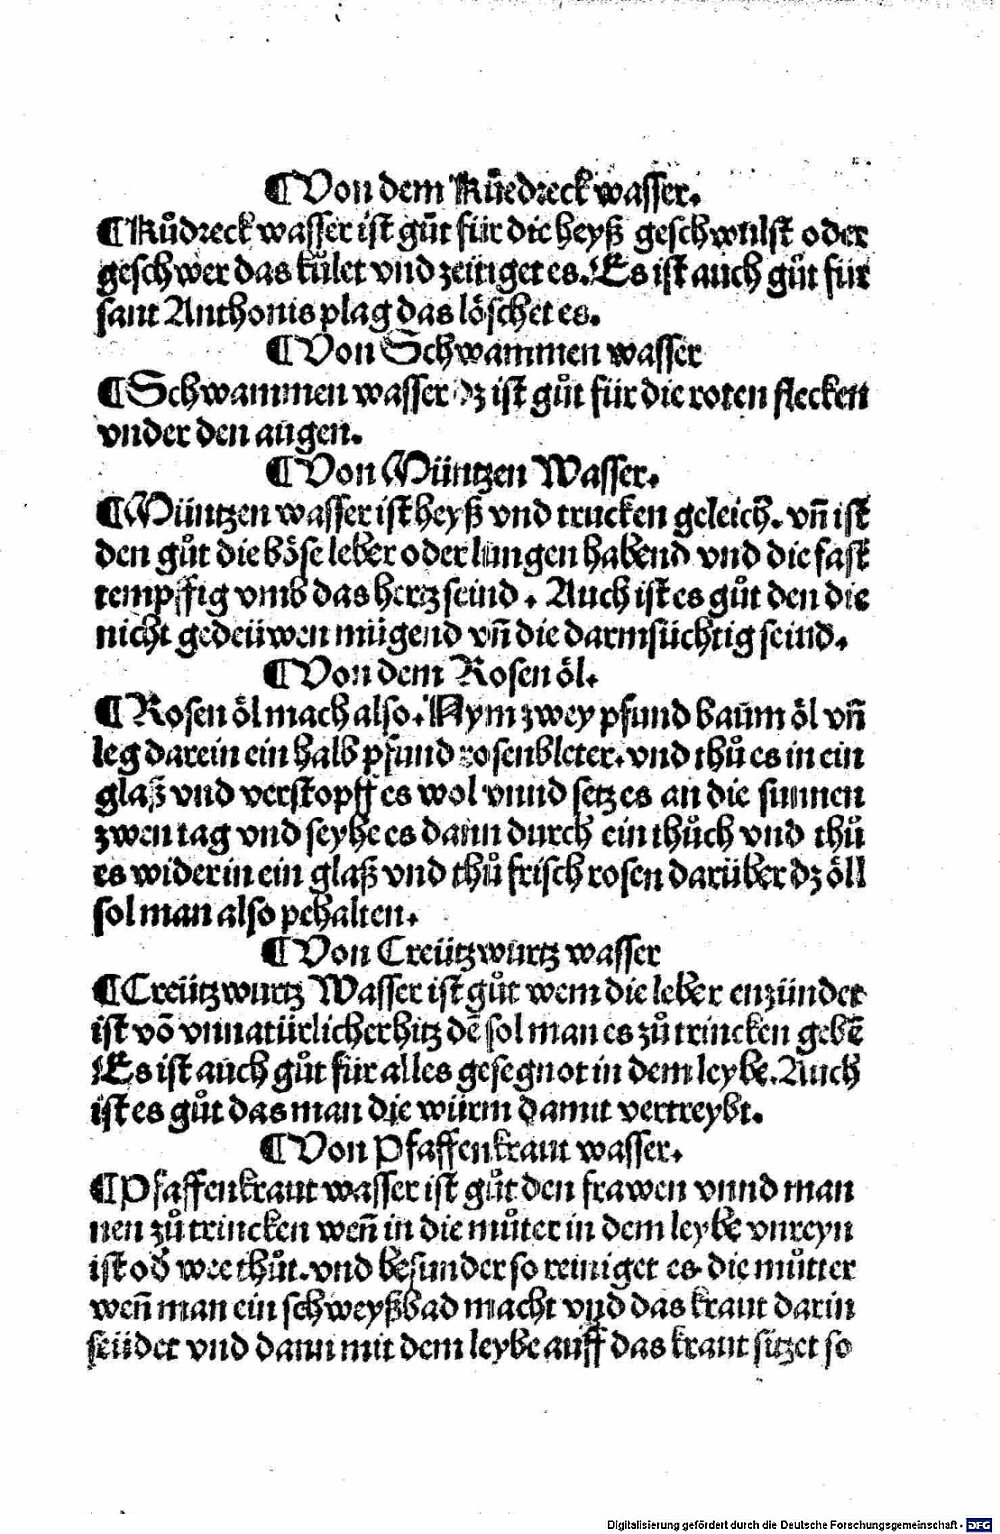 ¶Von dem Kuͤedreck wasser.
¶Kuͦdreck wasser ist guͦt für die heyß geschwulst oder
geschwer das kuͤlet vnd zeitiget es. Es ist auch guͦt für
sant Anthonis plag das löschet es.
¶Von Schwammen wasser
¶Schwammen wasser dz ist guͦt für die roten flecken
vnder den augen.
¶Von Müntzen Wasser.
¶Müntzen wasser ist heyß vnd trucken geleich. vn̄ ist
den guͦt die böse leber oder lungen habend vnd die fast
tempffig vmb das hertz seind. Auch ist es guͦt den die
nicht gedeüwen mügend vn̄ die darmsüchtig seind.
¶Von dem Rosen öl.
¶Rosen öl mach also. Nym zwey pfund baum öl vn̄
leg darein ein halb pfund rosenbleter. vnd thuͦ es in ein
glaß vnd verstopff es wol vnnd setz es an die sunnen
zwen tag vnd seyhe es dann durch ein thuͦch vnd thuͦ
es wider in ein glaß vnd thuͦ frisch rosen darüber dz öll
sol man also pehalten.
¶Von Creützwurtz wasser
¶Creützwurtz Wasser ist guͦt wem die leber enzündet
ist vō vnnatürlicher hitz dē sol man es zuͦ trincken gebē
Es ist auch guͦt für alles gesegnot in dem leybe. Auch
ist es guͦt das man die würm damit vertreybt.
¶Von Pfaffenkraut wasser.
¶Pfaffenkraut wasser ist guͦt den frawen vnnd man
nen zuͦ trincken wen̄ in die muͦter in dem leybe vnreyn
ist od̕ wee thuͦt. vnd besunder so reiniget es die muͦtter
wen̄ man ein schweyßbad macht vnd das kraut darin
seüdet vnd dann mit dem leybe auff das kraut sitzet so
Digitalisierung gefördert durch die Deutsche Forschungsgemeinschaft - DFG